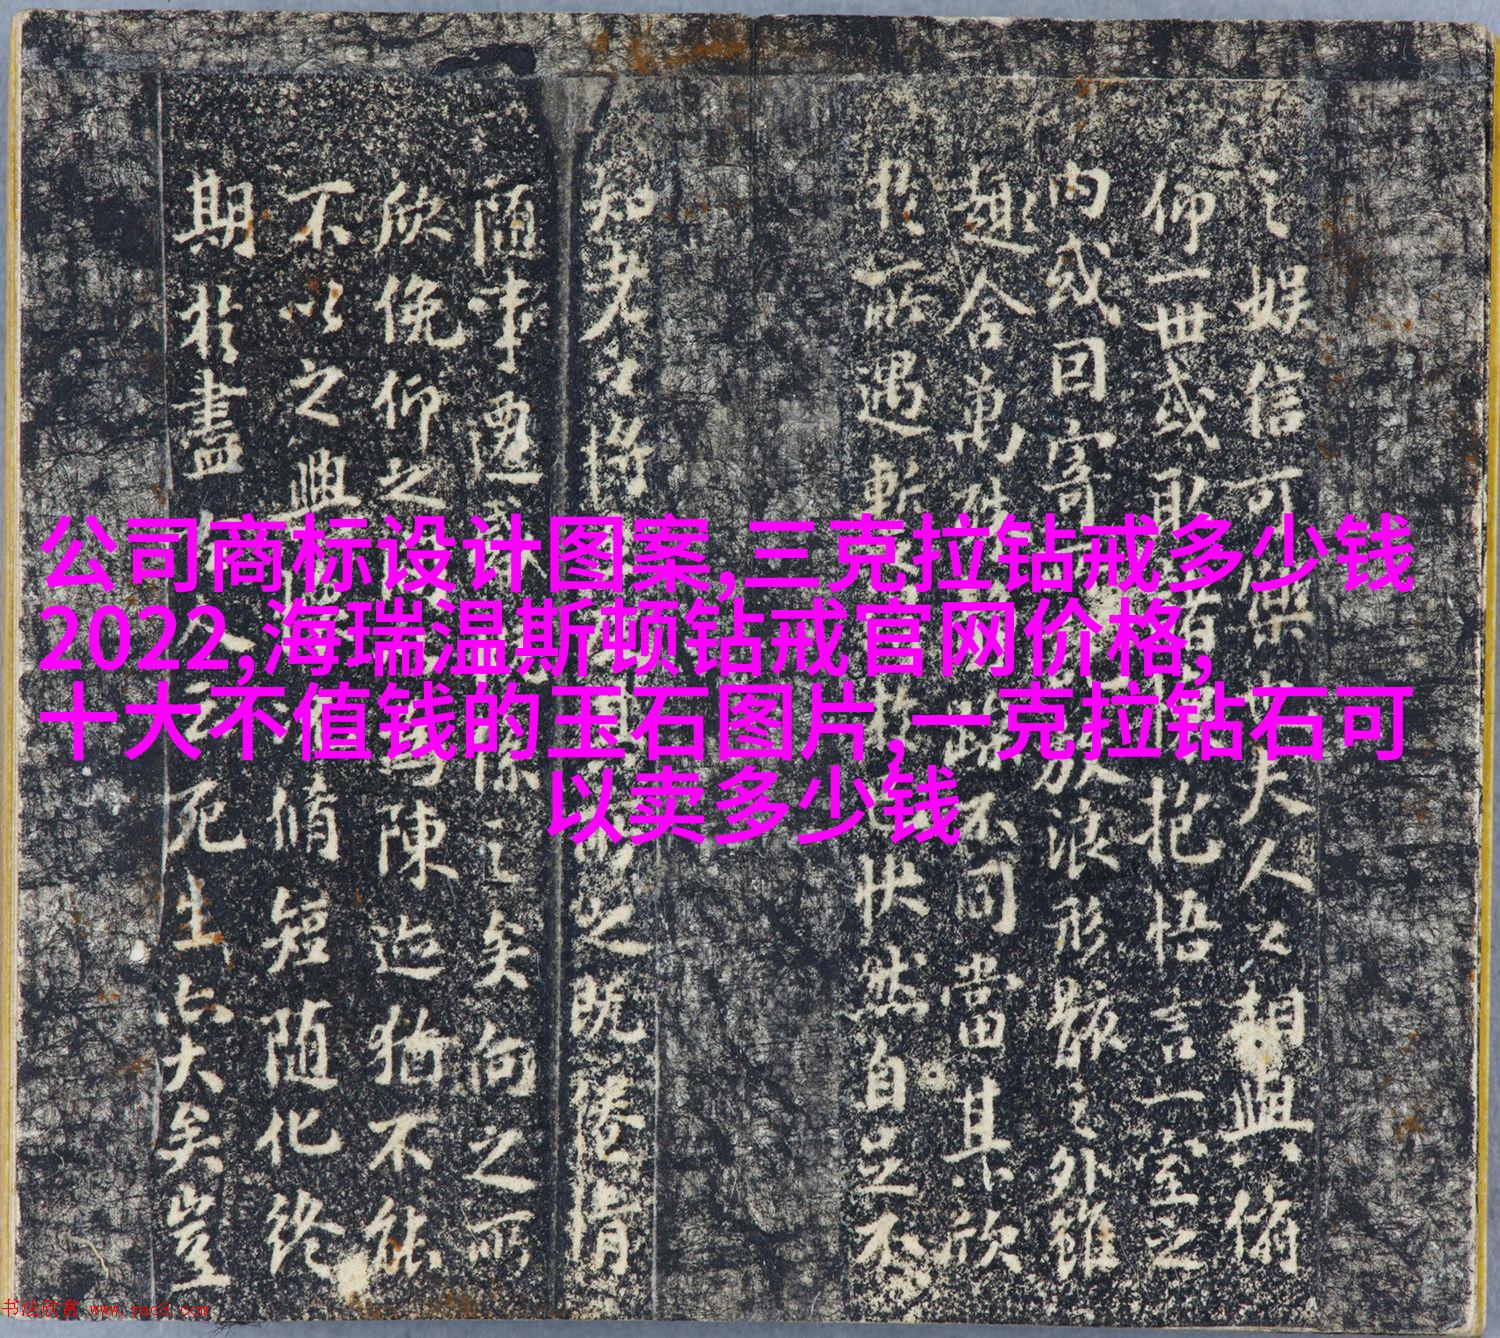 公司商标设计图案,三克拉钻戒多少钱
2022,海瑞温斯顿钻戒官网价格,
十大不值钱的玉石图片,一克拉钻石可
以卖多少钱
之娱信可樂夫人之相與俯
仰一世或取抱悟言一室之
内或因寄放浪形骸之外雖
趣舍萬殊不同當其欣
於所遇暫快然自足不
知老之將之既倦情
随事遷感之矣向之所
欣俛仰之陳迹猶不能
不以之興脩短随化終
期於盡人云死生亦大矣豈
书法欣赏 www.yac8.com